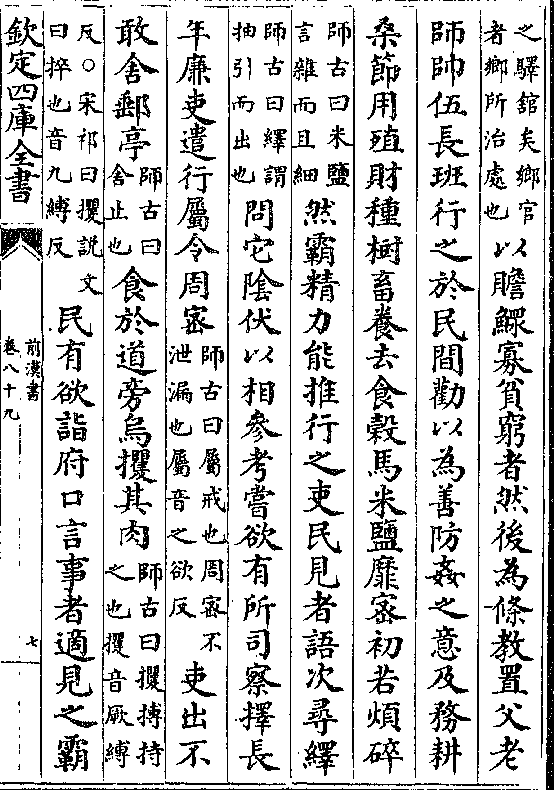 之驛館矣鄉官
者鄉所治處也
以贍鰥寡貧窮者然後為條教置父老
師帥伍長班行之於民間勸以為善防姦之意及務耕
桑節用殖財種樹畜養去食榖馬米鹽靡宻初若煩碎
師古曰米鹽
言雜而且細
然霸精力能推行之吏民見者語次尋繹
師古曰繹謂
抽引而出也
問它隂伏以相參考嘗欲有所司察擇長
年廉吏遣行屬令周宻
師古曰屬戒也周宻不
泄漏也屬音之欲反
吏出不
敢舍郵亭
師古曰
舍止也
食於道旁烏攫其肉
師古曰攫搏持
之也攫音厥縛
反○宋祁曰攫説文
曰捽也音九縛反
民有欲詣府口言事者適見之霸
欽定四庫全書
前漢書
卷八十九
七